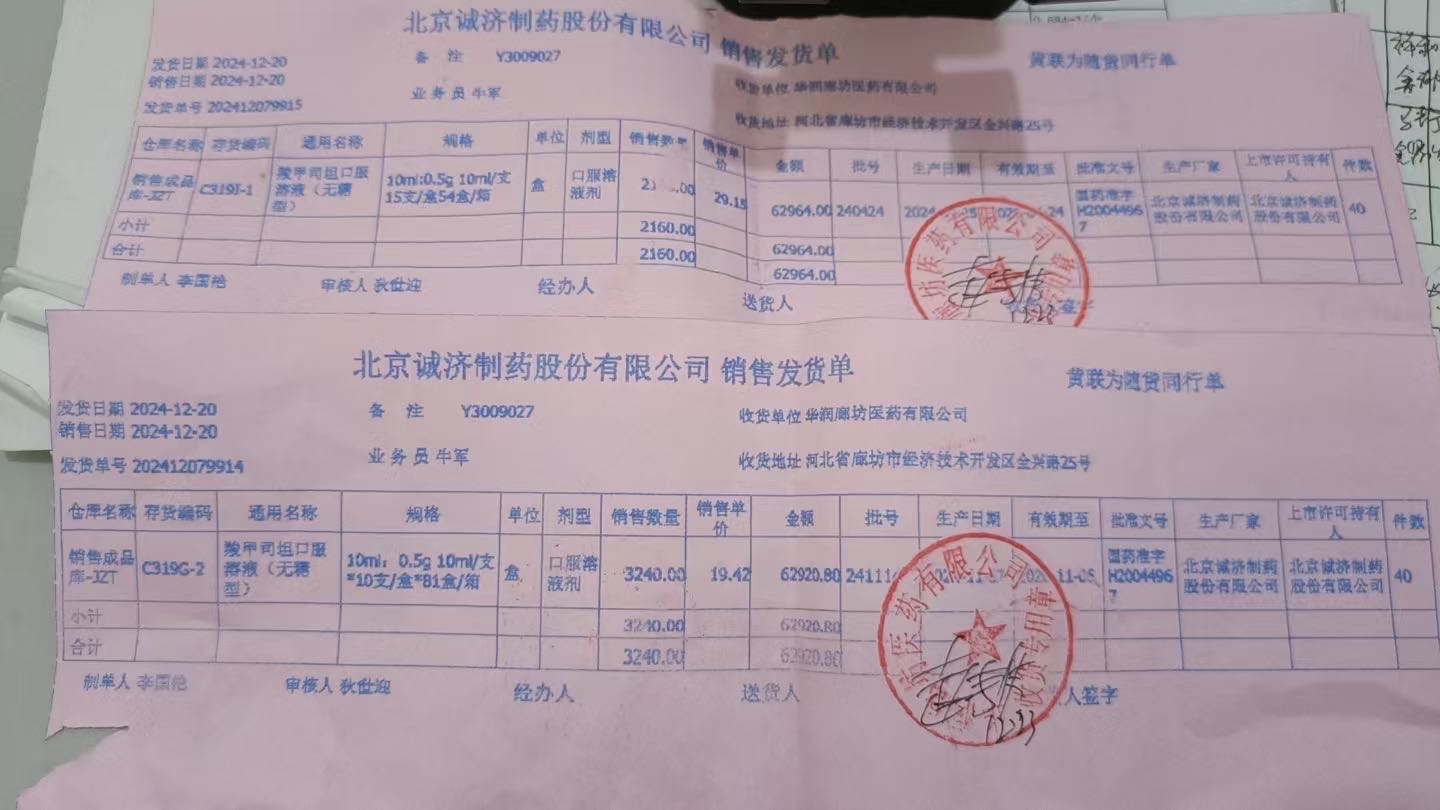 北京诚济制药股份有限公司 销售发货单
货联为随货同行单
发货日期 2024-12-20
备 注 Y3009027
收货单位 华润廊坊医药有限公司
销售日期 2024-12-20
业务员 牛军
收货地址 河北省廊坊市经济技术开发区金兴路25号
发货单号 202412079915
仓库名称 存货编码 通用名称 规格 单位 剂型 销售数量 销售单价 金额 批号 生产日期 有效期至 批准文号 生产厂家 上市许可持有人 件数
销售成品库-JZT C319J-1 羧甲司坦口服溶液（无糖型） 10ml:0.5g 10ml/支 15支/盒54盒/箱 盒 口服溶液剂 29.15 62964.00 240424 国药准字H20044967 北京诚济制药股份有限公司 北京诚济制药股份有限公司 40
小计 2160.00 62964.00
合计 2160.00 62964.00
制单人 李国艳 审核人 狄世迎 经办人 送货人
坊医药有限公司
专用章
北京诚济制药股份有限公司 销售发货单
货联为随货同行单
发货日期 2024-12-20
备 注 Y3009027
收货单位 华润廊坊医药有限公司
销售日期 2024-12-20
业务员 牛军
收货地址 河北省廊坊市经济技术开发区金兴路25号
发货单号 202412079914
仓库名称 存货编码 通用名称 规格 单位 剂型 销售数量 销售单价 金额 批号 生产日期 有效期至 批准文号 生产厂家 上市许可持有人 件数
销售成品库-JZT C319G-2 羧甲司坦口服溶液（无糖型） 10ml：0.5g 10ml/支*10支/盒*81盒/箱 盒 口服溶液剂 3240.00 19.42 62920.80 国药准字H20044967 北京诚济制药股份有限公司 北京诚济制药股份有限公司 40
小计 3240.00 62920.80
合计 3240.00 62920.80
制单人 李国艳 审核人 狄世迎 经办人 送货人 人签字
医药有限公司
收货专用章
12.23